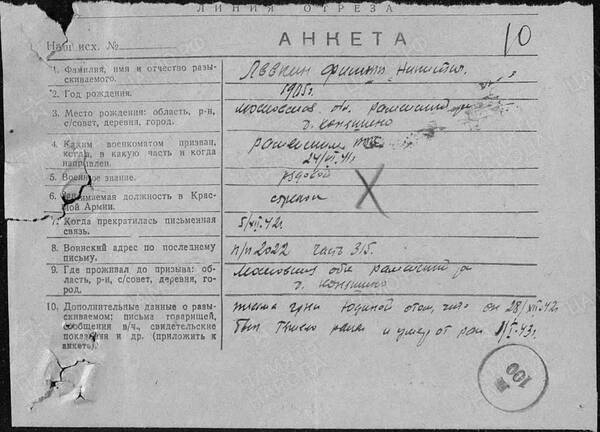 ЛИНИЯ ОТРЕЗА
Наш исх. №
АНКЕТА
10
1. Фамилия, имя и отчество разыскиваемого.
Левкин Филипп Никитич
2. Год рождения.
1905г.
3. Место рождения: область, р-н,
с/совет, деревня, город.
Московская об. Раменский
4. Каким военкоматом призван,
когда, в какую часть и когда
направлен.
Раменским
24/VI.41г.
5. Военное звание.
рядовой
6. Занимаемая должность в Крас-
ной Армии.
стрелок
7. Когда прекратилась письменная
связь.
5/XII.42г.
8. Воинский адрес по последнему
письму.
п/п 2022 часть 315.
9. Где проживал до призыва: об-
ласть, р-н, с/совет, деревня, го-
род.
Московская обл Раменский
10. Дополнительные данные о разы-
скиваемом; письма товарищей,
сообщения в/ч., свидетельские
показания и др. (приложить к
анкете).
о том, что он 28/XII.42г
был ранен и умер от ран 1/I-43г.
100